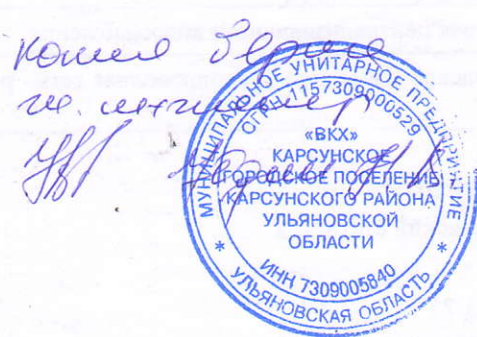 копия верна
гл. инженер
МУНИЦИПАЛЬНОЕ УНИТАРНОЕ ПРЕДПРИЯТИЕ
ОГРН 1157309000529
«ВКХ»
КАРСУНСКОЕ
ГОРОДСКОЕ ПОСЕЛЕНИЕ
КАРСУНСКОГО РАЙОНА
УЛЬЯНОВСКОЙ
ОБЛАСТИ
ИНН 7309005840
* УЛЬЯНОВСКАЯ ОБЛАСТЬ *